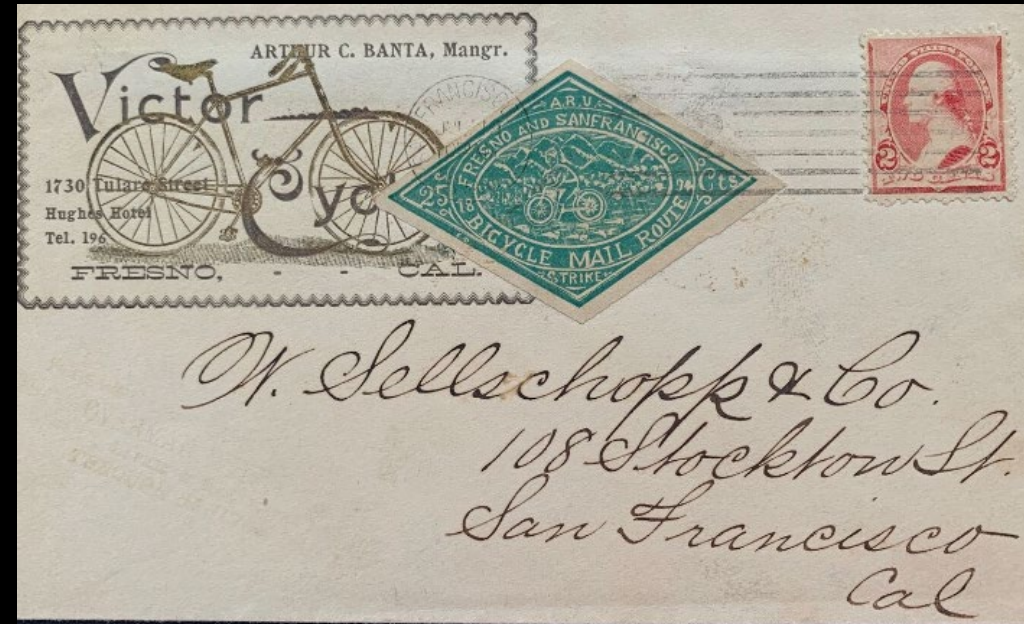 ARTHUR C. BANTA, Mangr.
Victor
Cyc
1730 Tulare Street
Hughes Hotel
Tel. 196
FRESNO, - - CAL.
FRANCISCO
A.R.U.
FRESNO AND SANFRANCISCO
25 Cts
18 94
BICYCLE MAIL ROUTE
STRIKE
UNITED STATES
2 2
W. Sellschopp & Co.
108 Stockton St.
San Francisco
Cal